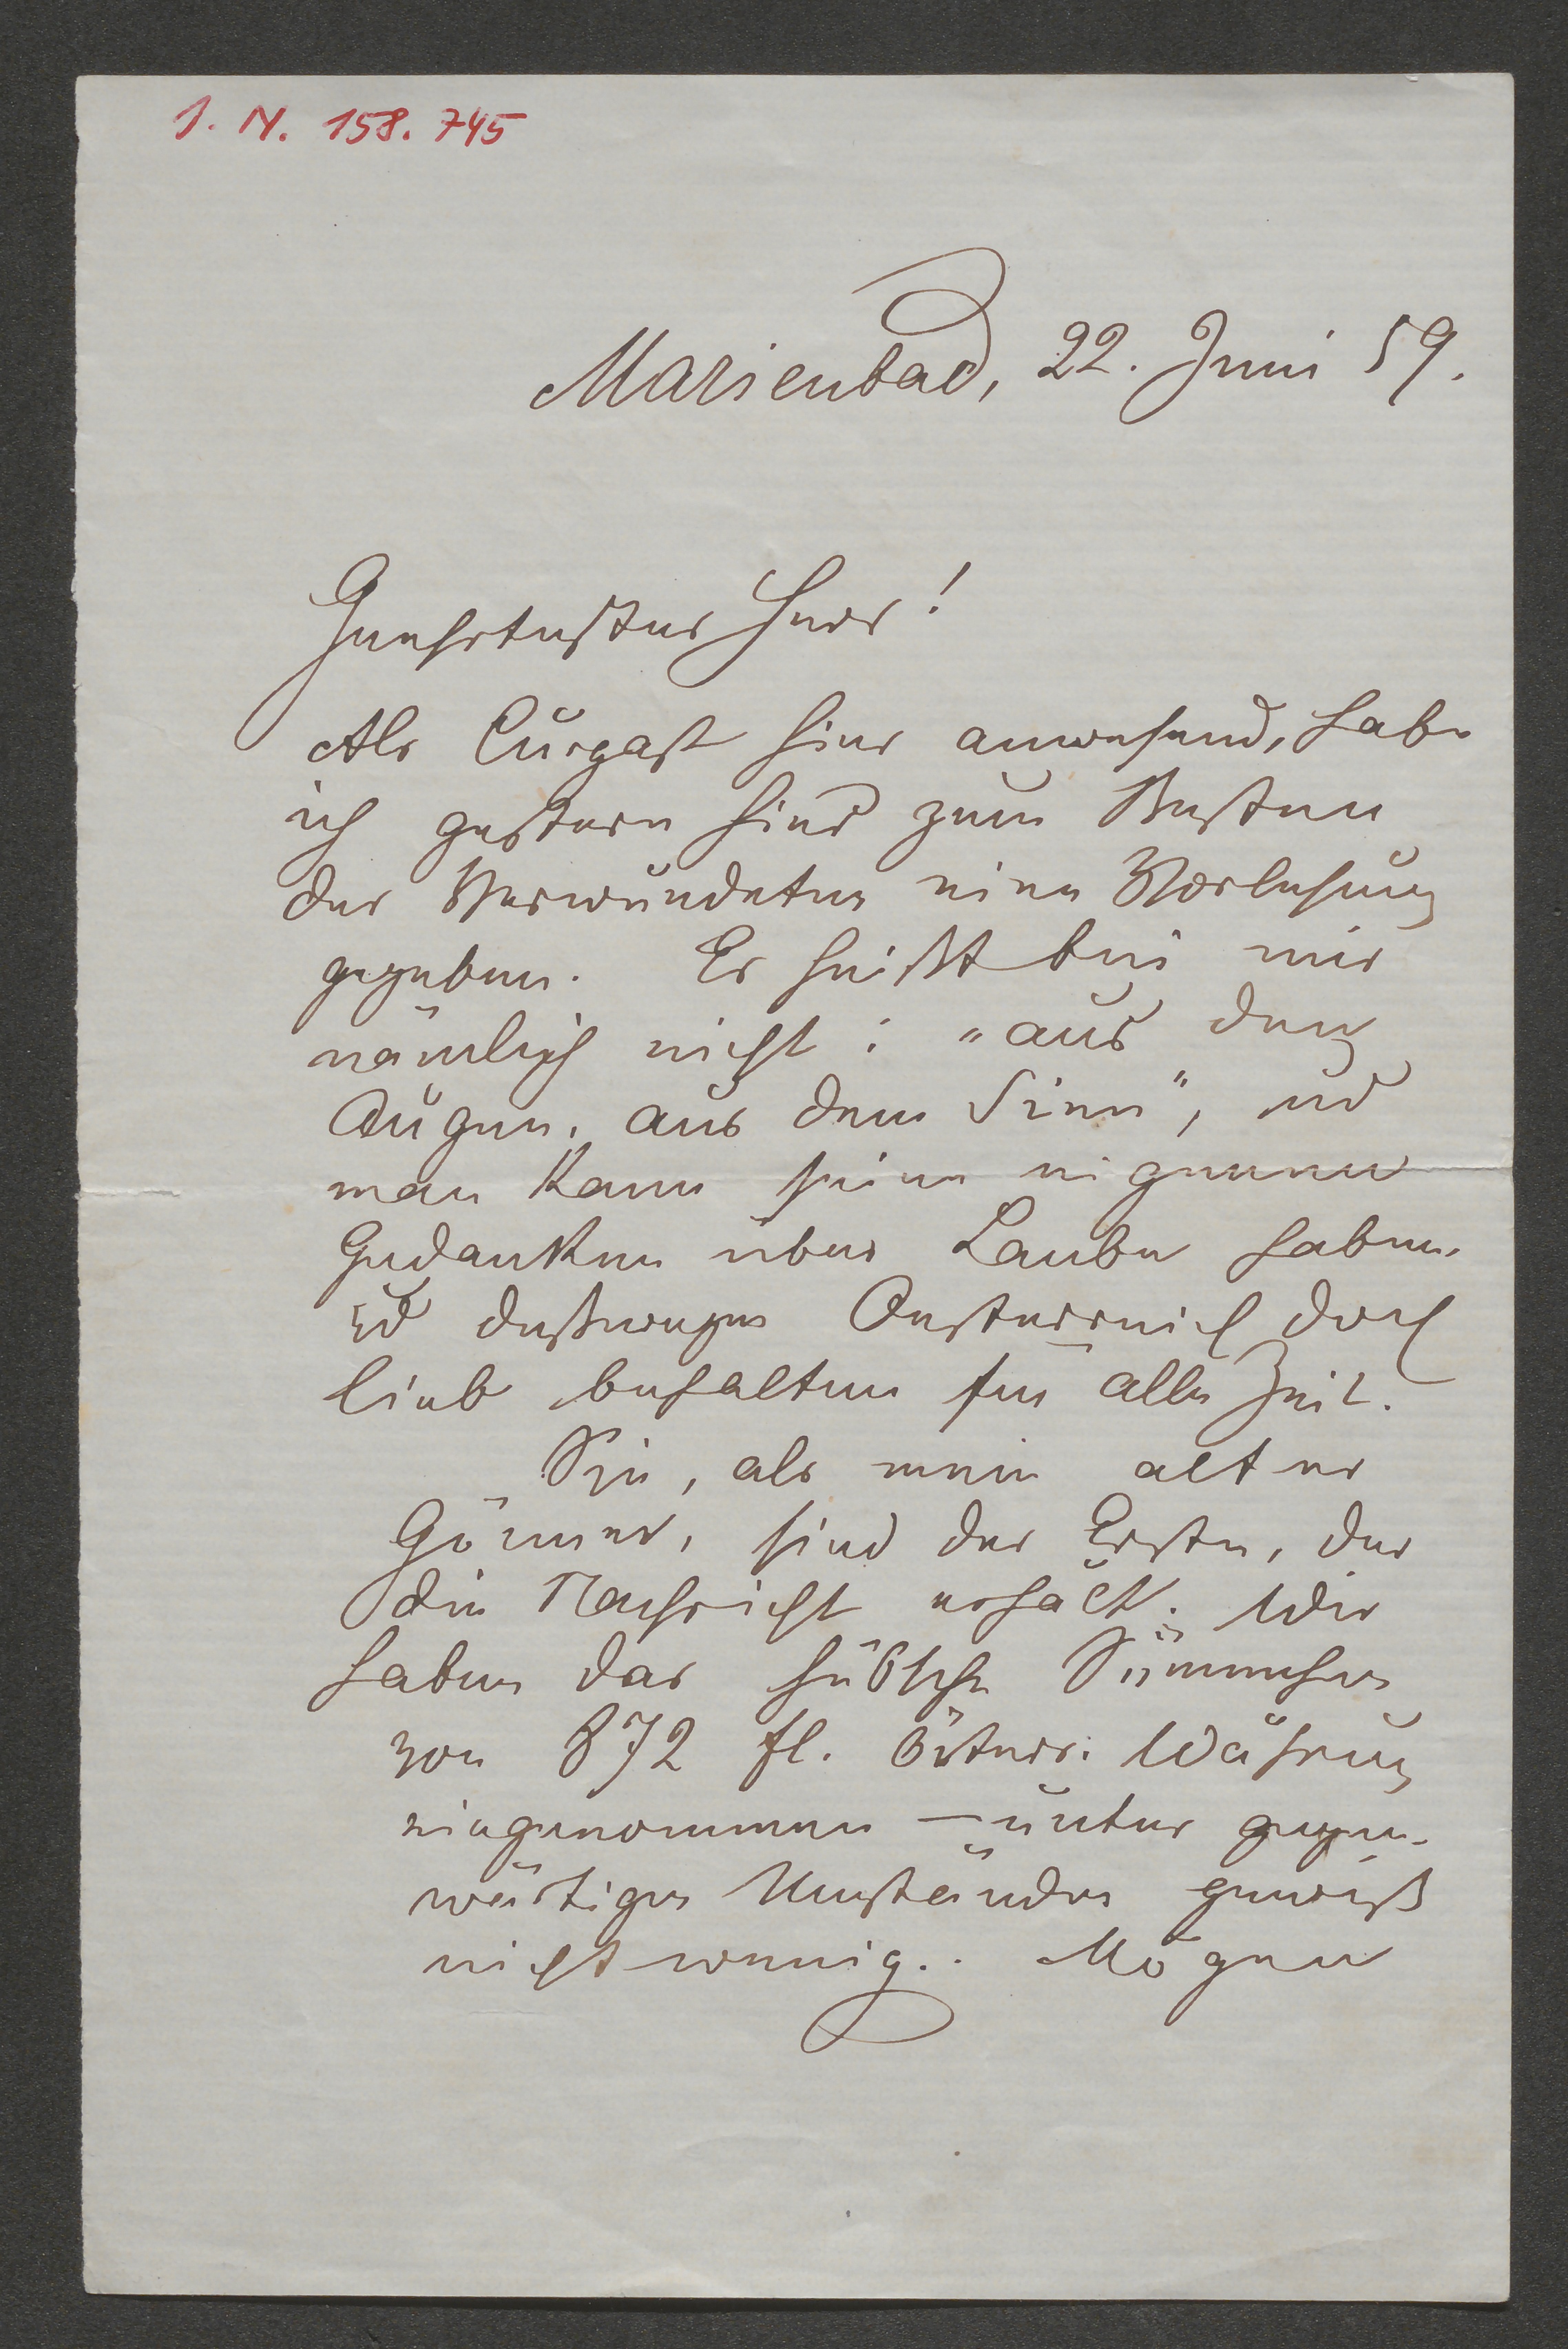 I. N. 158.745
Marienbad, 22. Juni 59.
Geehrtester Herr!
Als Curgast hier anwesend, habe
ich gestern hier zum Besten
der Verwundeten eine Vorlesung
gegeben. Es heißt bei mir
nämlich nicht: „aus den
Augen, aus dem Sinn", und
man kann seine eigenen
Gedanken über Laube haben,
und deßwegen Oesterreich doch
lieb behalten für alle Zeit.
Sie, als mein alter
Gönner, sind der Erste, der
die Nachricht erhält. Wir
haben das hübsche Sümmchen
von 872 fl. österr. Währung
eingenommen – unter gegen-
wärtigen Umständen gewiß
nicht wenig. Mögen